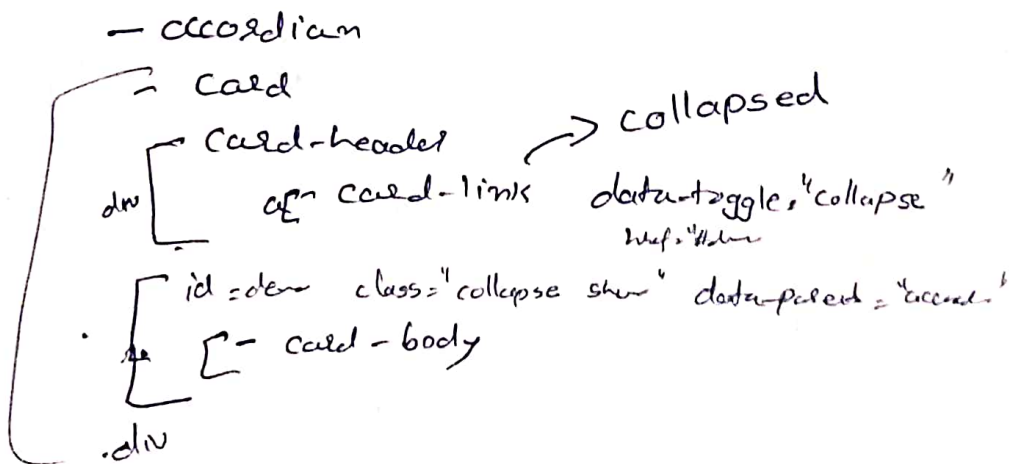 - accordian
- card
card-header → collapsed
div a card-link data-toggle="collapse"
href="#dem
id=dem class="collapse show" data-parent="accord."
[- card-body
.div